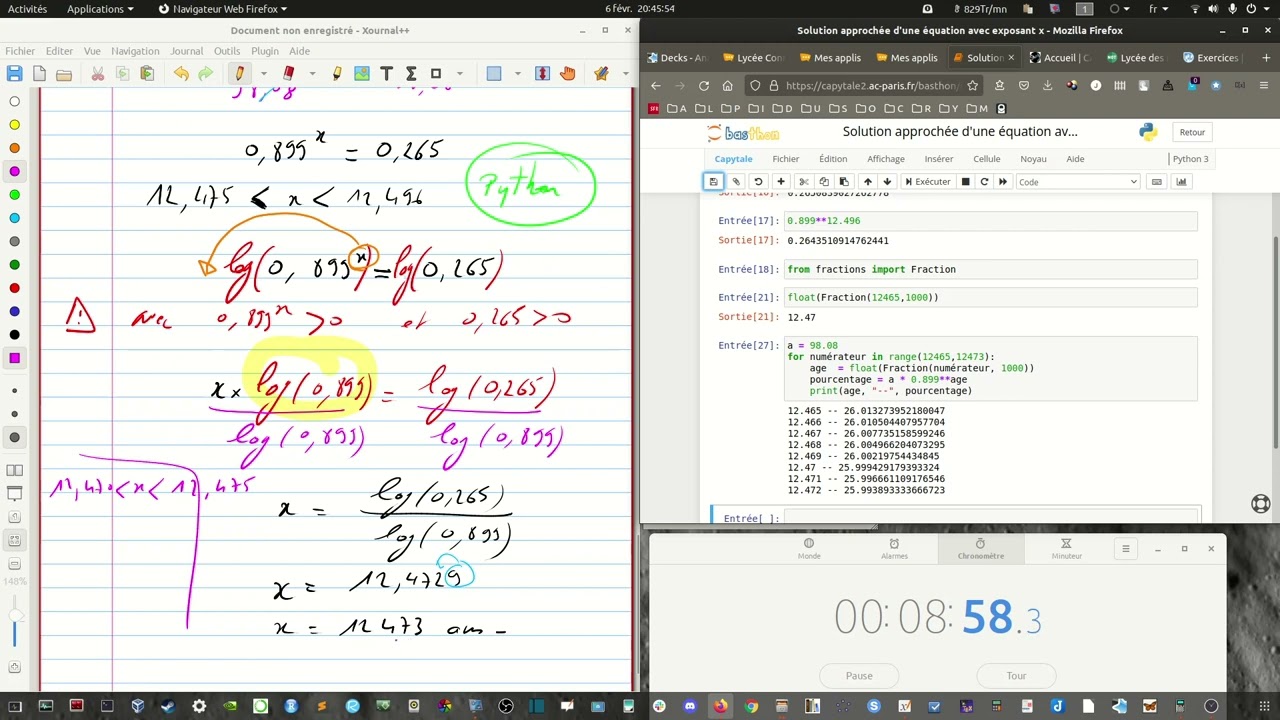 Activités Applications Navigateur Web Firefox 6 févr. 20:45:54 829Tr/mn 1 fr
Document non enregistré - Xournal++
Fichier Editer Vue Navigation Journal Outils Plugin Aide
0,899^x = 0,265
12,475 < x < 12,496
Python
log(0,899^x) = log(0,265)
avec 0,899^x > 0 et 0,265 > 0
x × log(0,899) = log(0,265)
log(0,899) log(0,899)
12,470 < x < 12,475
x = log(0,265)
log(0,899)
x = 12,4729
x = 12 473 ans
148%
Solution approchée d'une équation avec exposant x - Mozilla Firefox
Decks - An Lycée Con Mes applis Mes applis Solution Accueil | C Lycée des Exercices |
https://capytale2.ac-paris.fr/basthon/
A L P I D U S O C R Y M
basthon Solution approchée d'une équation av... Retour
Capytale Fichier Édition Affichage Insérer Cellule Noyau Aide Python 3
Exécuter Code
Entrée[17]: 0.899**12.496
Sortie[17]: 0.2643510914762441
Entrée[18]: from fractions import Fraction
Entrée[21]: float(Fraction(12465,1000))
Sortie[21]: 12.47
Entrée[27]: a = 98.08
for numérateur in range(12465,12473):
age = float(Fraction(numérateur, 1000))
pourcentage = a * 0.899**age
print(age, "--", pourcentage)
12.465 -- 26.013273952180047
12.466 -- 26.010504407957704
12.467 -- 26.007735158599246
12.468 -- 26.004966204073295
12.469 -- 26.00219754434845
12.47 -- 25.999429179393324
12.471 -- 25.996661109176546
12.472 -- 25.993893333666723
Entrée[ ]:
Monde Alarmes Chronomètre Minuteur
00:08:58.3
Pause Tour